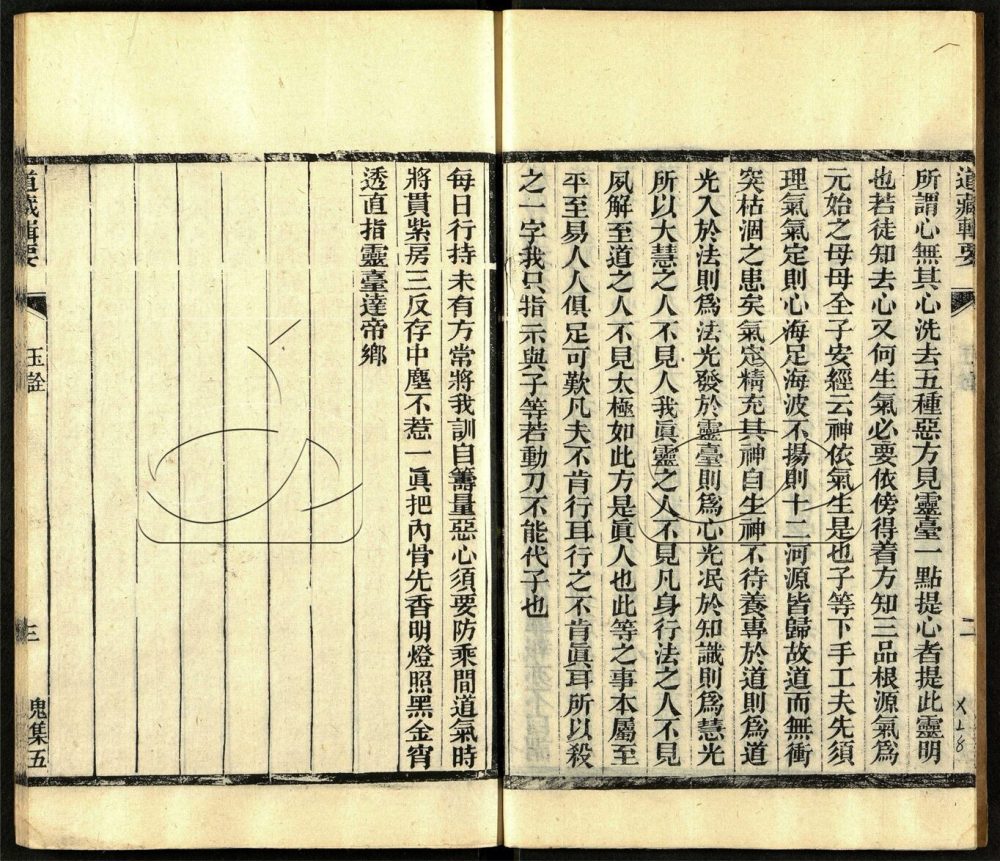 道藏輯要
二
所謂心無其心洗去五種惡方見靈臺一點提心者提此靈明
也若徒知去心又何生氣必要依傍得着方知三品根源氣爲
元始之母母全子安經云神依氣生是也子等下手工夫先須
理氣氣定則心海足海波不揚則十二河源皆歸故道而無衝
突枯涸之患矣氣定精充其神自生神不待養專於道則爲道
光入於法則爲法光發於靈臺則爲心光泯於知識則爲慧光
所以大慧之人不見人我眞靈之人不見凡身行法之人不見
夙解至道之人不見太極如此方是眞人也此等之事本屬至
平至易人人俱足可歎凡夫不肯行耳行之不肯眞耳所以殺
之一字我只指示與子等若動刀不能代子也
每日行持未有方常將我訓自籌量惡心須要防乘間道氣時
將貫紫房三反存中塵不惹一眞把內骨先香明燈照黑金宵
透直指靈臺達帝鄉
道藏輯要
玉詮
三
鬼集五